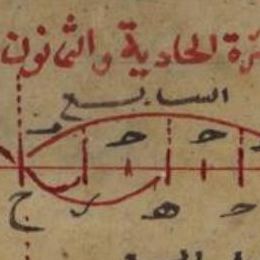 ئرة الحادية والثمانون
السابع
د ح ح
ج ر ه ح